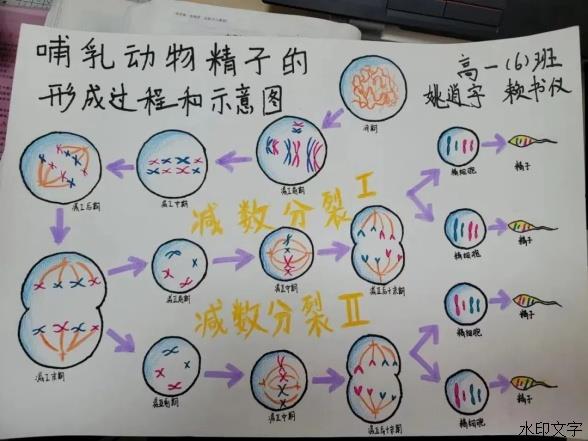 哺乳动物精子的
形成过程和示意图
高一(6)班
姚逍宇 赖书仪
间期
减I前期
减I中期
减I后期
减I末期
减数分裂 I
减II前期
减II中期
减II后+末期
精细胞
精子
精细胞
精子
减数分裂 II
减II前期
减II中期
减II后+末期
精细胞
精子
精细胞
精子
水印文字